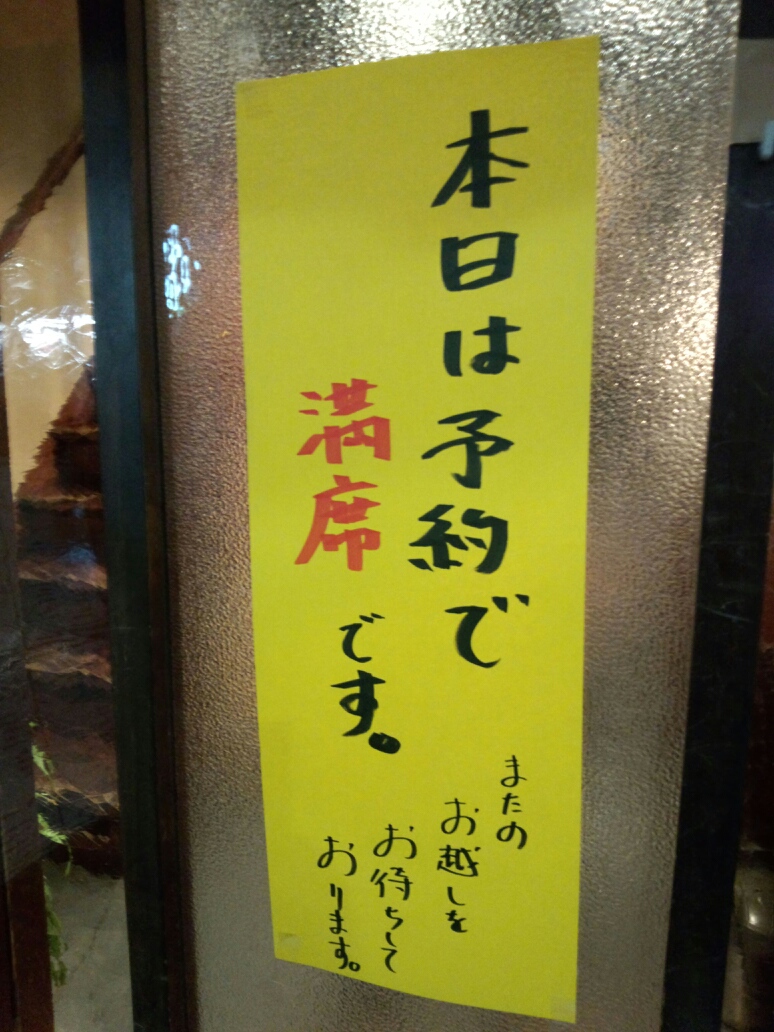 本日は予約で
満席です。
またの
お越しを
お待ちして
おります。